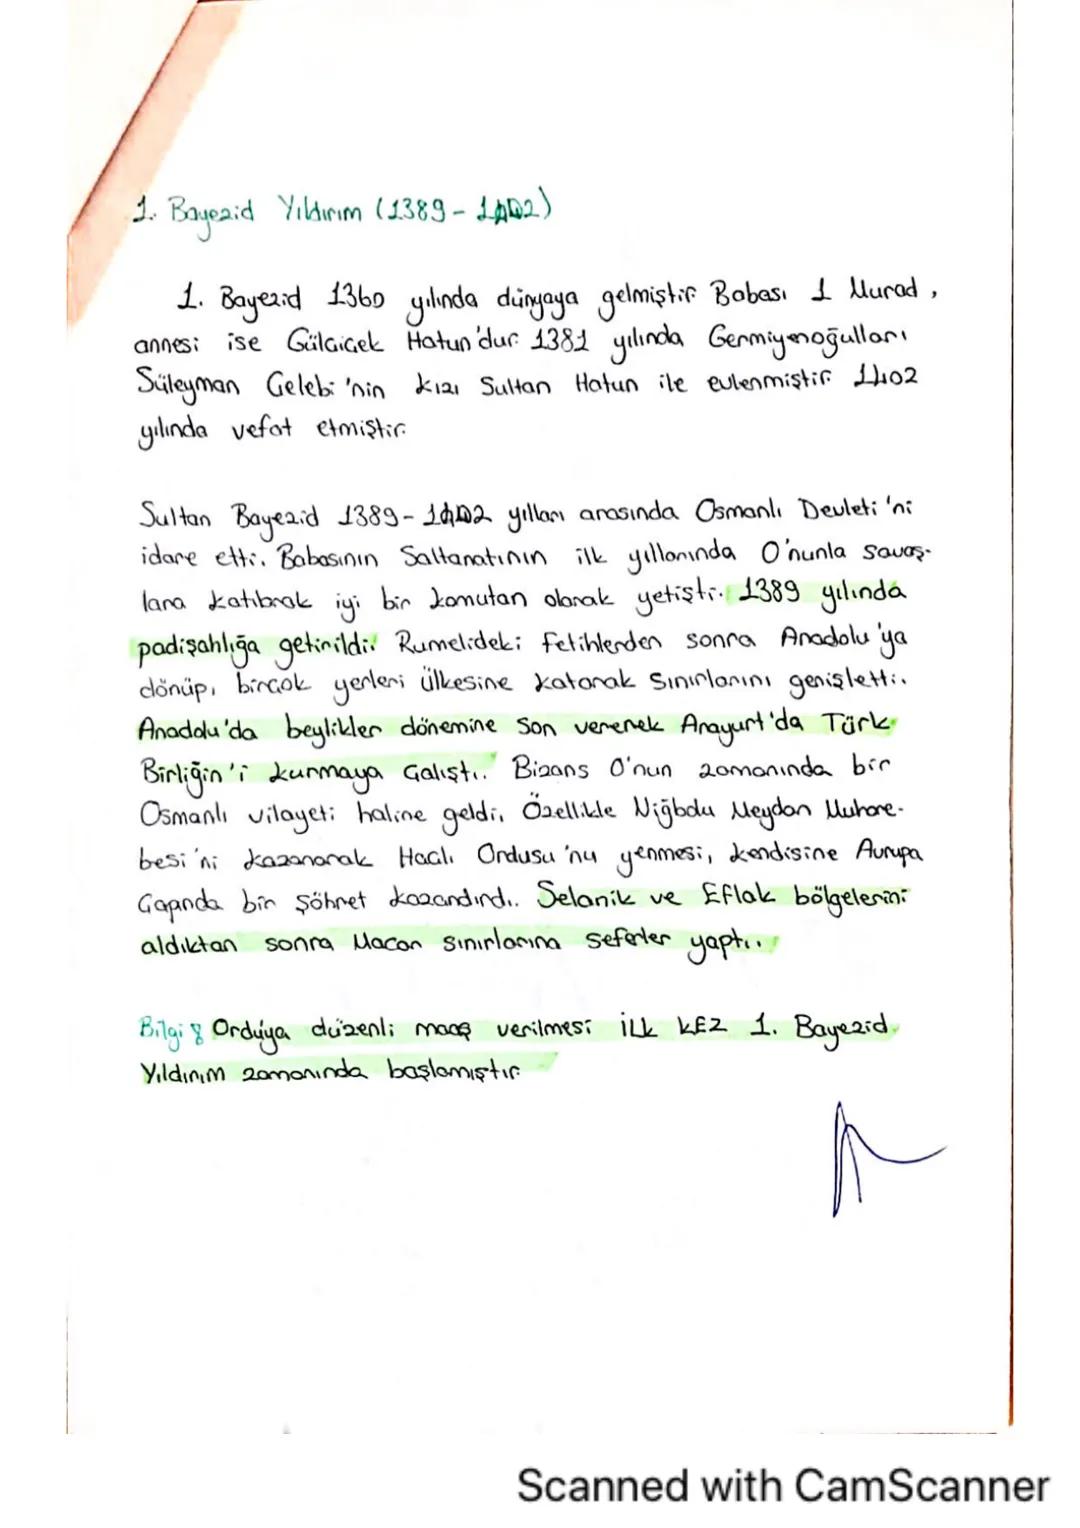 1. Bayezid Yıldırım (1389 - 1402)
1. Bayezid 1360 yılında dünyaya gelmiştir. Babası 1 Murad,
annesi ise Gülçiçek Hatun'dur. 1381 yılında Germiyanoğulları
Süleyman Çelebi'nin kızı Sultan Hatun ile evlenmiştir. 1402
yılında vefat etmiştir.
Sultan Bayezid 1389 - 1402 yılları arasında Osmanlı Devleti'ni
idare etti. Babasının Saltanatının ilk yıllarında O'nunla savaş-
lara katılarak iyi bir komutan olarak yetişti. 1389 yılında
padişahlığa getirildi. Rumelideki fetihlerden sonra Anadolu'ya
dönüp, birçok yerleri ülkesine katarak sınırlarını genişletti.
Anadolu'da beylikler dönemine son vererek Anayurt'da Türk
Birliğin'i kurmaya çalıştı. Bizans O'nun zamanında bir
Osmanlı vilayeti haline geldi. Özellikle Niğbolu Meydan Muhare-
besi'ni kazanarak Haçlı Ordusu'nu yenmesi, kendisine Avrupa
Çapında bir şöhret kazandırdı. Selanik ve Eflak bölgelerini
aldıktan sonra Macar sınırlarına seferler yaptı.
Bilgi : Ordu'ya düzenli maaş verilmesi İLK KEZ 1. Bayezid
Yıldırım zamanında başlamıştır.
Scanned with CamScanner